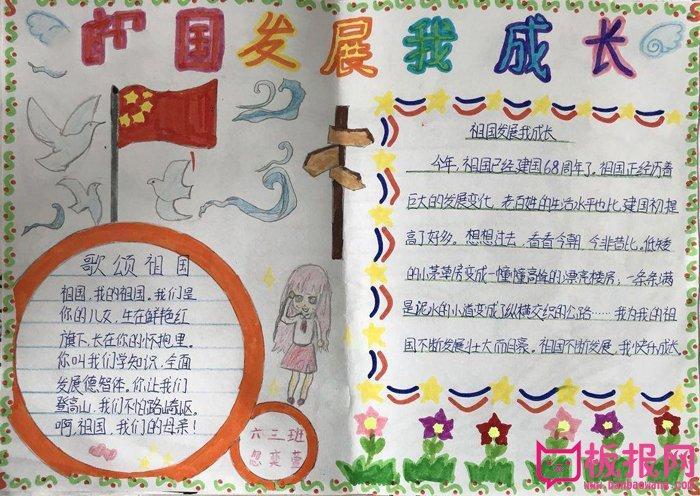 中国发展我成长
歌颂祖国
祖国,我的祖国。我们是
你的儿女,生在鲜艳红
旗下,长在你的怀抱里。
你叫我们学知识,全面
发展德智体。你让我们
登高山,我们不怕路崎岖。
啊,祖国,我们的母亲!
六三班
祖国发展我成长
今年,祖国已经建国68周年了。祖国正经历着
巨大的发展变化,老百姓的生活水平也比建国初提
高了好多。想想过去,看看今朝,今非昔比。低矮
的小茅草房变成一幢幢高耸的小漂亮楼房;一条条满
是泥水的小道变成了纵横交织的公路……我为我的祖
国不断发展壮大而自豪。祖国不断发展,我快乐成长
板报网
www.banbaowang.com